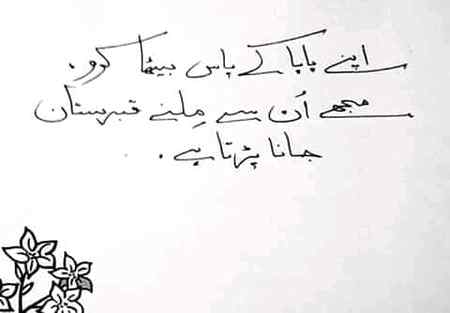 اپنے پاپا کے پاس بیٹھا کرو.
مجھے اُن سے مِلنے قبرستان
جانا پڑتا ہے.